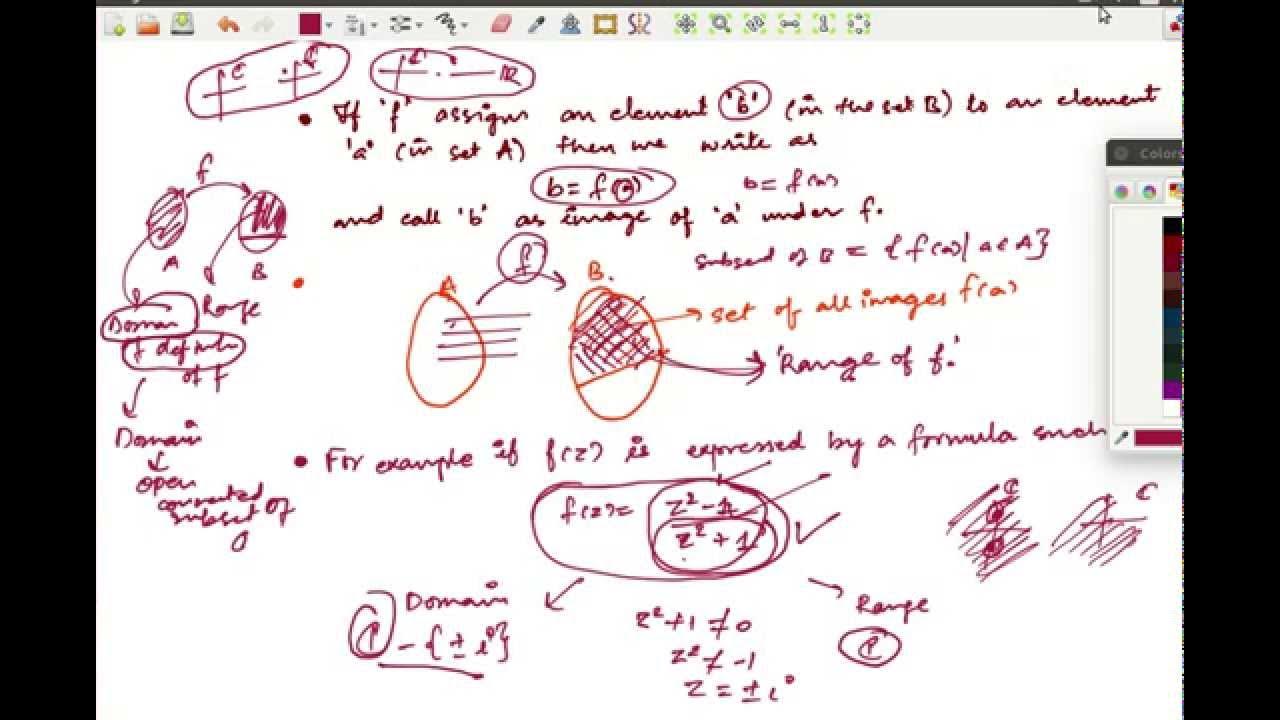 C
ℝ
• If 'f' assigns an element 'b' (in the set B) to an element
'a' (in set A) then we write as
b = f(a) b = f(a)
and call 'b' as image of 'a' under f.
f
A B
Domain Range
of definition
of f
Domain
open
connected
subset of
f
A B.
subset of B = {f(a) | a ∈ A}
set of all images f(a)
'Range of f.'
• For example if f(z) is expressed by a formula such
f(z) = z² - 1
z² + 1
C C
Domain
ℂ - {± i}
z² + 1 ≠ 0
z² ≠ -1
z = ± i
Range
ℂ
Colors